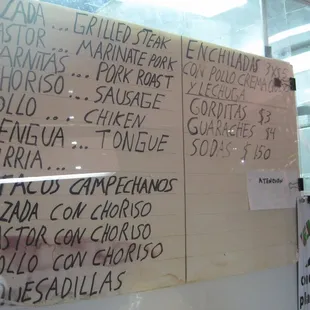 ZADA ... GRILLED STEAK
ASTOR ... MARINATE PORK
ARNITAS ... PORK ROAST
CHORISO ... SAUSAGE
OLLO ... CHIKEN
ENGUA ... TONGUE
RRIA ...
TACOS CAMPECHANOS
ZADA CON CHORISO
ASTOR CON CHORISO
OLLO CON CHORISO
QUESADILLAS
ENCHILADAS
CON POLLO CREMA
Y LECHUGA
GORDITAS $3
GUARACHES $4
SODAS $150
ATENCION